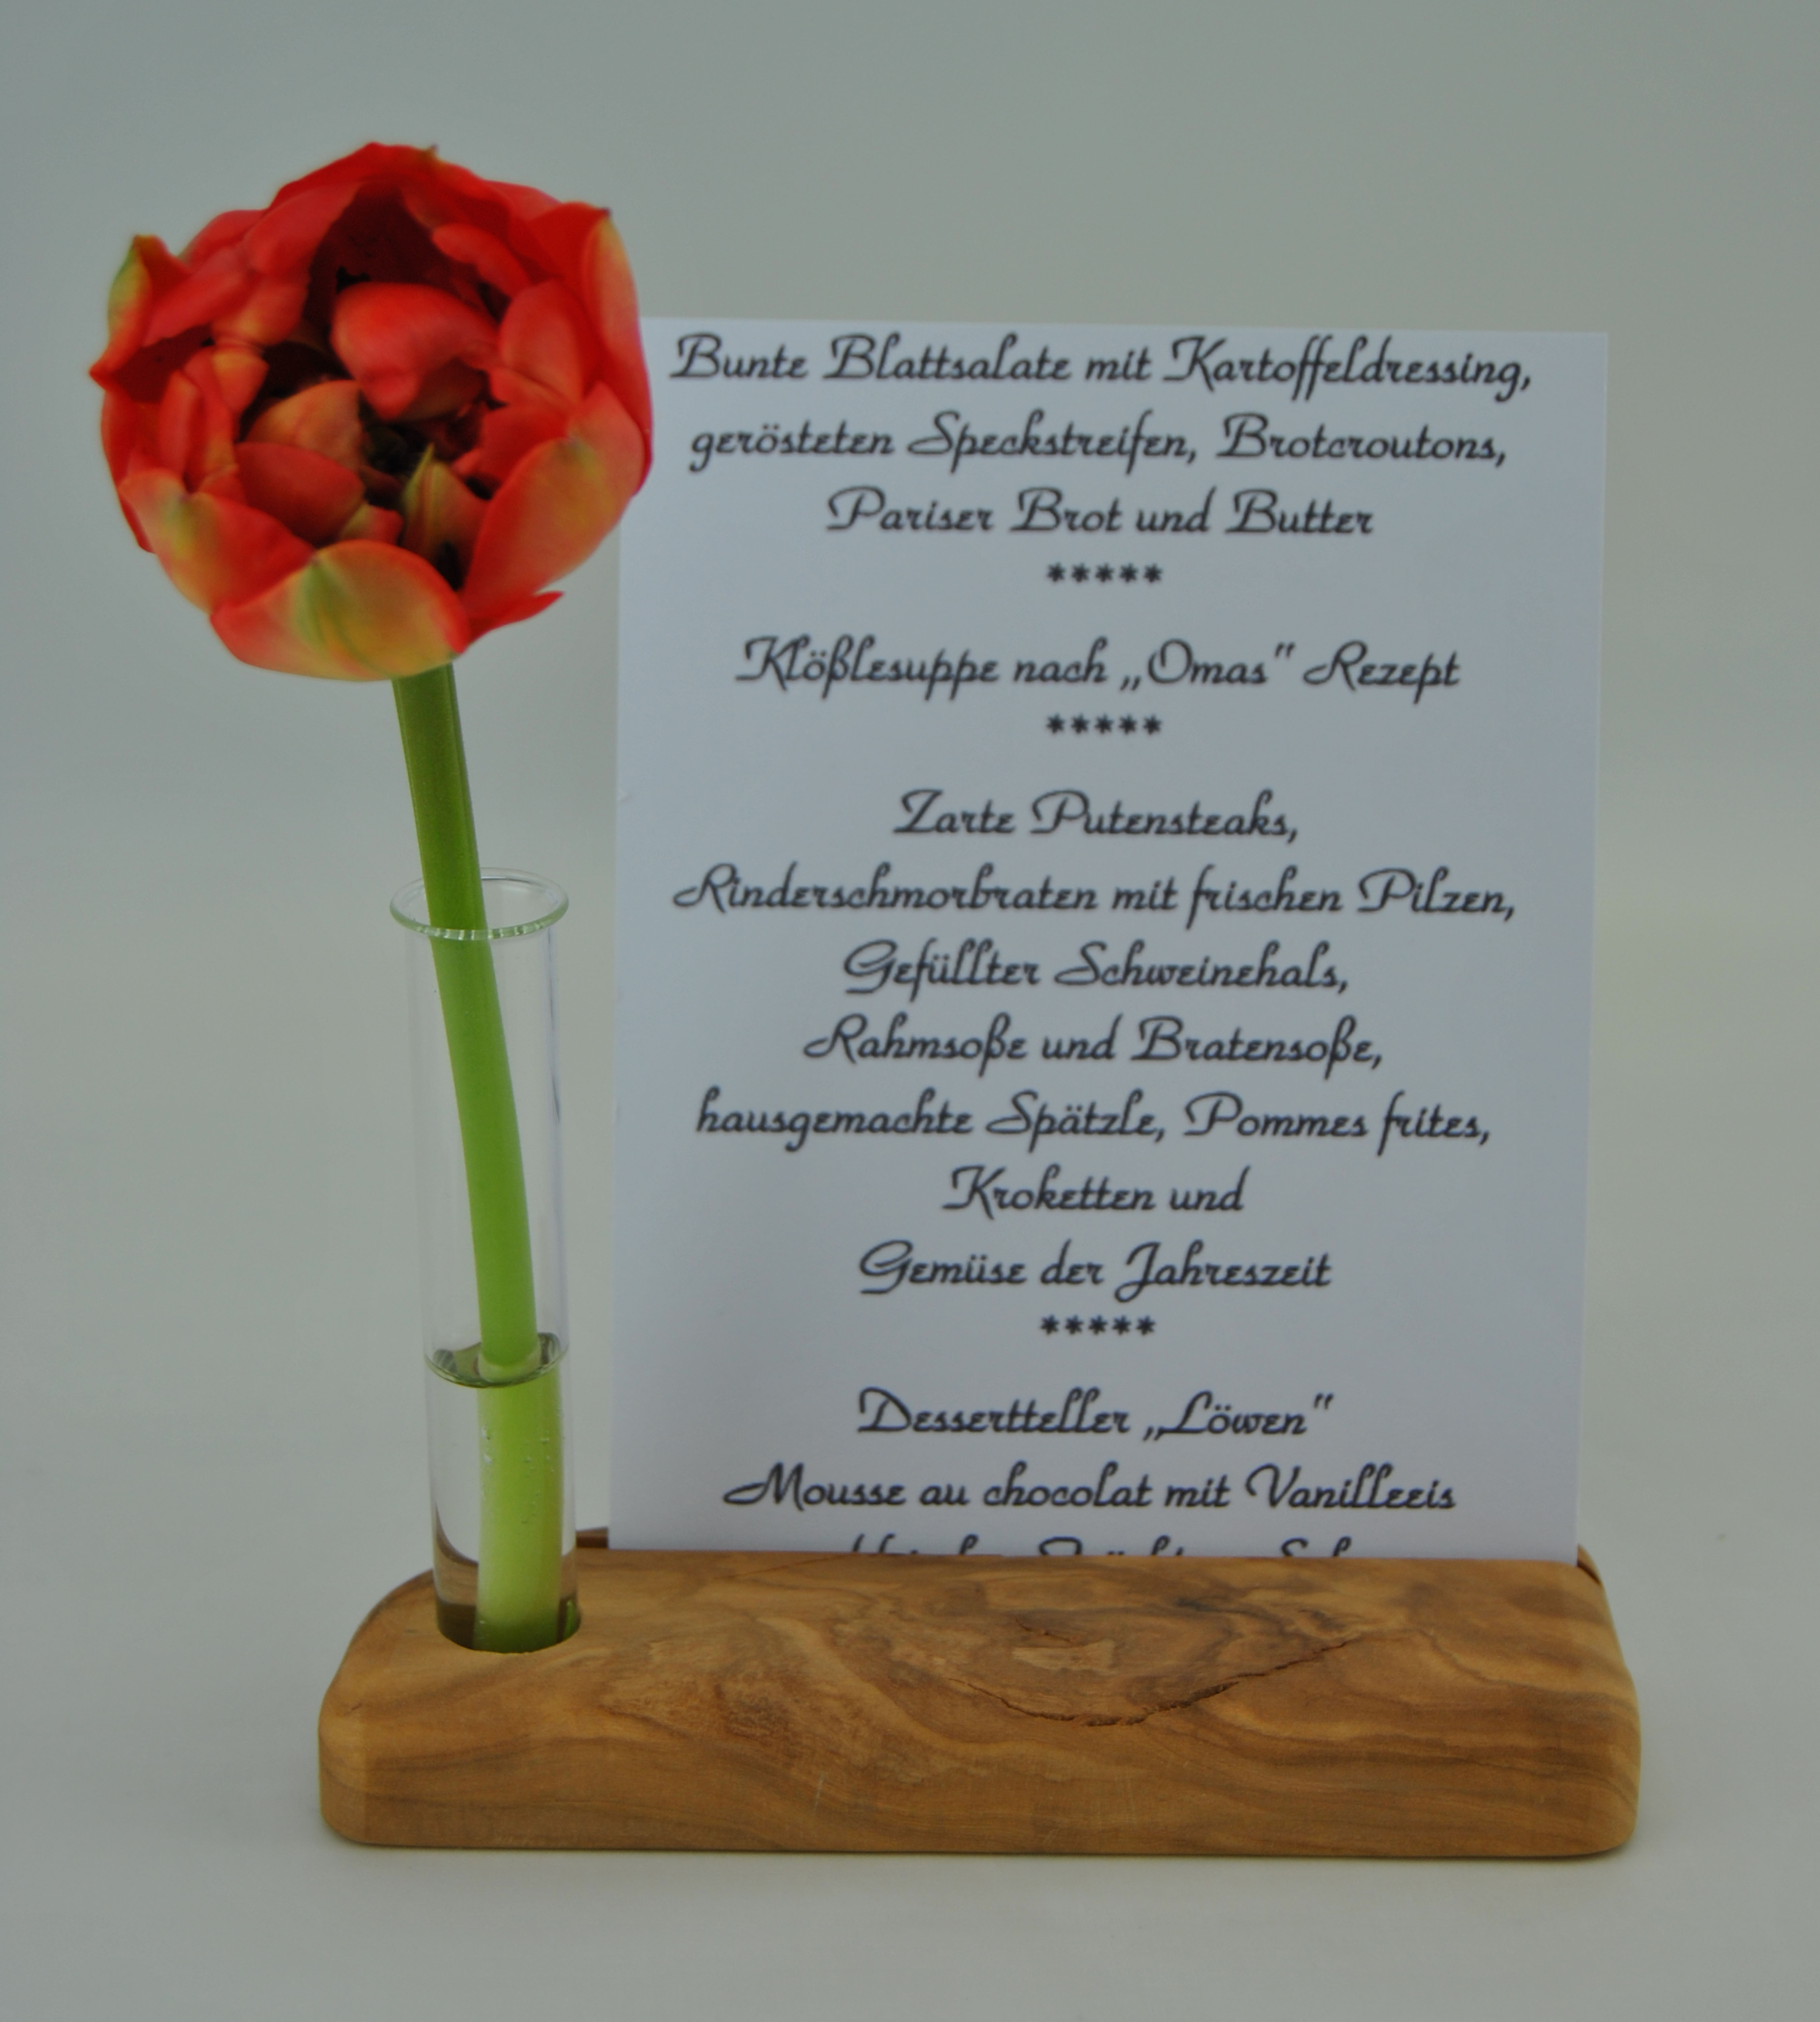 Bunte Blattsalate mit Kartoffeldressing,
gerösteten Speckstreifen, Brotcroutons,
Pariser Brot und Butter
*****
Klößlesuppe nach „Omas" Rezept
*****
Zarte Putensteaks,
Rinderschmorbraten mit frischen Pilzen,
Gefüllter Schweinehals,
Rahmsoße und Bratensoße,
hausgemachte Spätzle, Pommes frites,
Kroketten und
Gemüse der Jahreszeit
*****
Dessertteller „Löwen"
Mousse au chocolat mit Vanilleeis